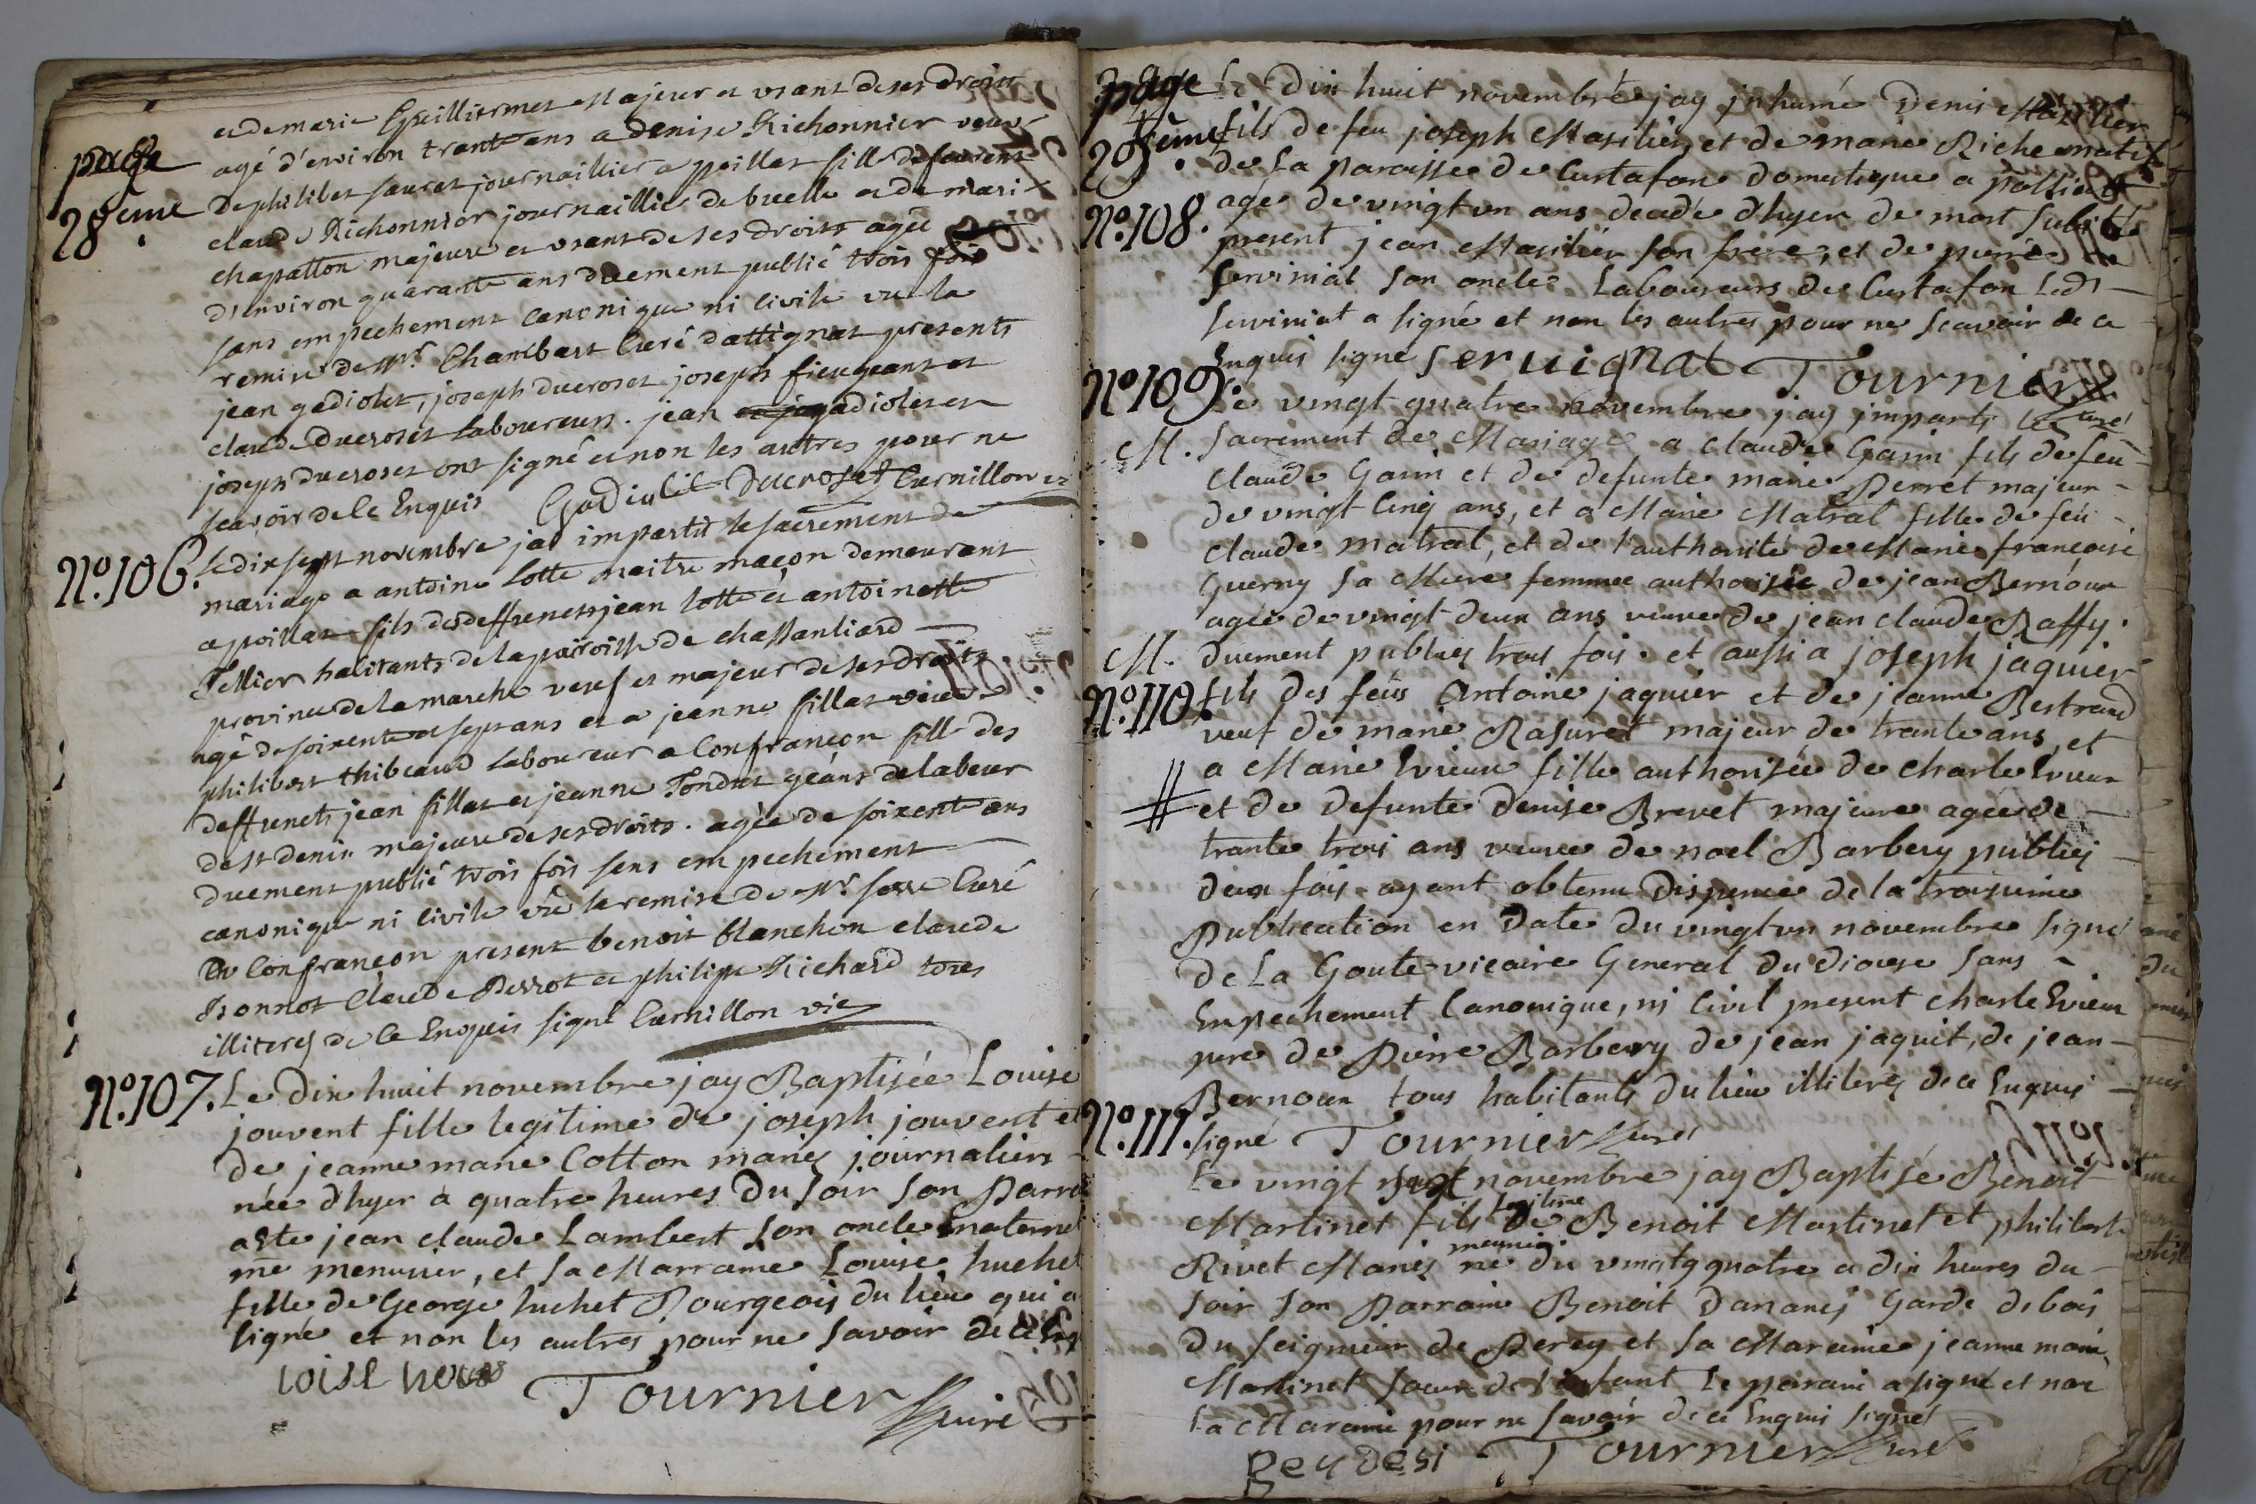 page
28ème
et de marie Guilliermet Majeur et usant de ses droits
agé d'environ trante ans a denise Richonnier veuve
de philibet sauret journaillier a poillat fille de
claude Richonnier journaillier de buelle et de marie
chapatton majeure et usant de ses droits agée
d'environ quarante ans duement publié trois fois
sans empechement canonique ni civile vu la
remise de Mr. Chambart Curé dattignat presents
jean gadiolet, joseph ducroset joseph fieugeant et
claude ducroset laboureurs. jean gadiolet et
joseph ducroset ont signé et non les autres pour ne
scavoir de ce Enquis Gadiolet ducroset Curnillon
No. 106. Le dix sept novembre jai impartit le sacrement de
mariage a antoine Lotte maitre maçon demeurant
a poillat fils des deffunets jean Lotte et antoinette
Tellier habitants de la paroisse de chassanliard
province de la marche veuf et majeur de ses droits
agé de soixente et sept ans et a jeanne fillat veuve
philibert thibeaud laboureur a Confrançon fille des
deffunets jean fillat et jeanne Tondut géans de labeur
de st denis majeure de ses droits. agée de soixente ans
duement publié trois fois sens empechement
canonique ni civile vu la remise de Mr curé
du Confrançon present benoit blanchon claude
Bonnot Claude Perrot et philippe Richard tous
illiterés de ce Enquis signé Curnillon vic
No. 107. Le dix huit novembre jay Baptisée Louise
jouvent fille legitime de joseph jouvent et
de jeanne marie Cotton mariés journaliers
née d'hyer à quatre heures du soir son Parra
a Ste jean claude Lambert son oncle maternel
me menusier, et sa Marraine Louise huchet
fille de George huchet Bourgeois du lieu qui a
signé et non les autres pour ne savoir de ce Enq
Tournier curé
page
29ème
No. 108. Le Dix huit novembre jay inhumé Denis Marilier
fils de feu joseph Marilier et de marie Riche natif
de La paroisse de Curtafon domestique a polliat
agé de vingt un ans decedé d'hyer de mort subite
present jean Marilier son frere, et de pierre
Serviniat son oncle Laboureurs de Curtafon Ledt
serviniat a signé et non les autres pour ne scavoir de ce
Enquis signé seruignat Tournier curé
No. 109. Le vingt quatre novembre jay imparti le
M. sacrement de Mariage a Claude Garin fils de feu
Claude Garin et de defunte marie Perret majeur
de vingt Cinq ans, et a Marie Matrat fille de feu
Claude matrat, et de l'authorité de Marie françoise
Guerny sa Mere femme authorisée de jean Bernoux
agée de vingt deux ans veuve de jean claude Raffy.
M. duement publiés trois fois. et aussi a joseph jaquier
No. 110. fils des feus Antoine jaquier et de jeanne Bertrand
veuf de marie Rasuret majeur de trante ans, et
a Marie Evieux fille authorisée de charle Evieux
et de defunte denise Brevet majeure agée de
trante trois ans veuve de noel Barbery publiés
deux fois ayant obtenu Dispense de la troisieme
Publication en Date du vingt un novembre signé
de La Goute vicaire General du diocese sans
Empechement Canonique, ni Civil present charle Evieux
pere de Pierre Barbery de jean jaquit, de jean
Bernoux tous habitants du lieu illiterés de ce Enquis
No. 111. signé Tournier curé
Le vingt novembre jay Baptisé Benoit
Martinet fils legitime de Benoit Martinet et philiberte
Rivet Mariés meunier né du vingt quatre a dix heures du
soir son Parrain Benoit Dananes Garde de bois
du seigneur de Perey et sa Maraine jeanne marie
Martinet soeur de l'enfant Le parain a signé et non
La Maraine pour ne savoir de ce Enquis signé
Tournier curé